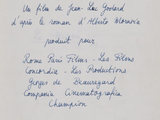 Un film de Jean-Luc Godard
d'après le roman d'Alberto Moravia
produit pour
Rome Paris Films - Les Films
Concordia - Les Productions
Georges de Beauregard
Compania Cinematografica
Champion